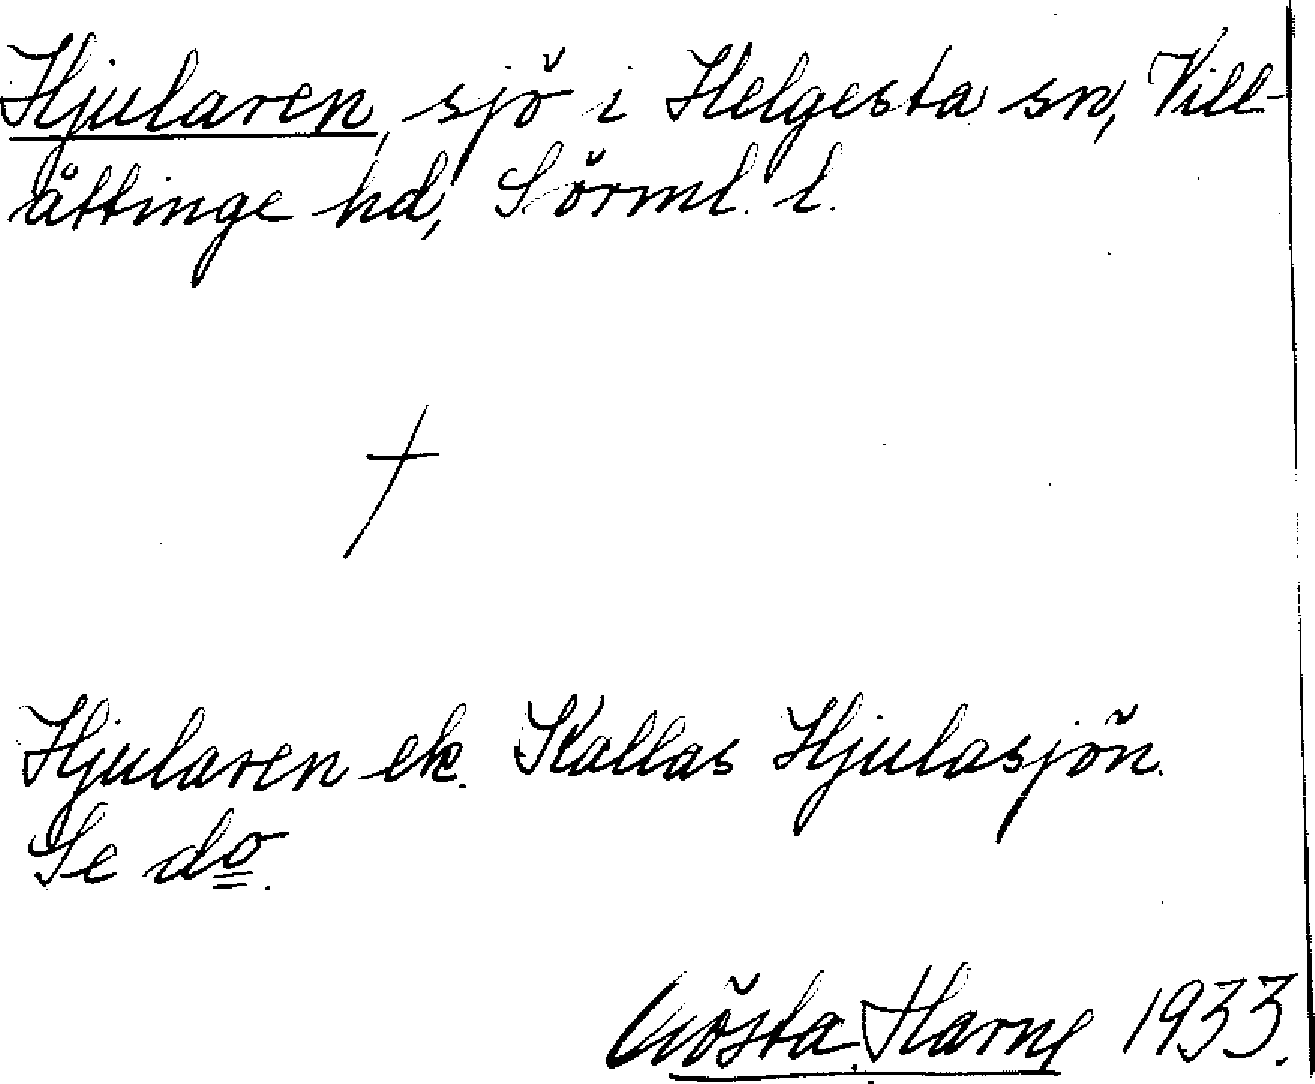 Hjularen, sjö i Helgesta sn, Vill-
åttinge hd, Sörml. l.
†
Hjularen ek. Kallas Hjulasjön.
Se do.
Gösta Harne 1933.